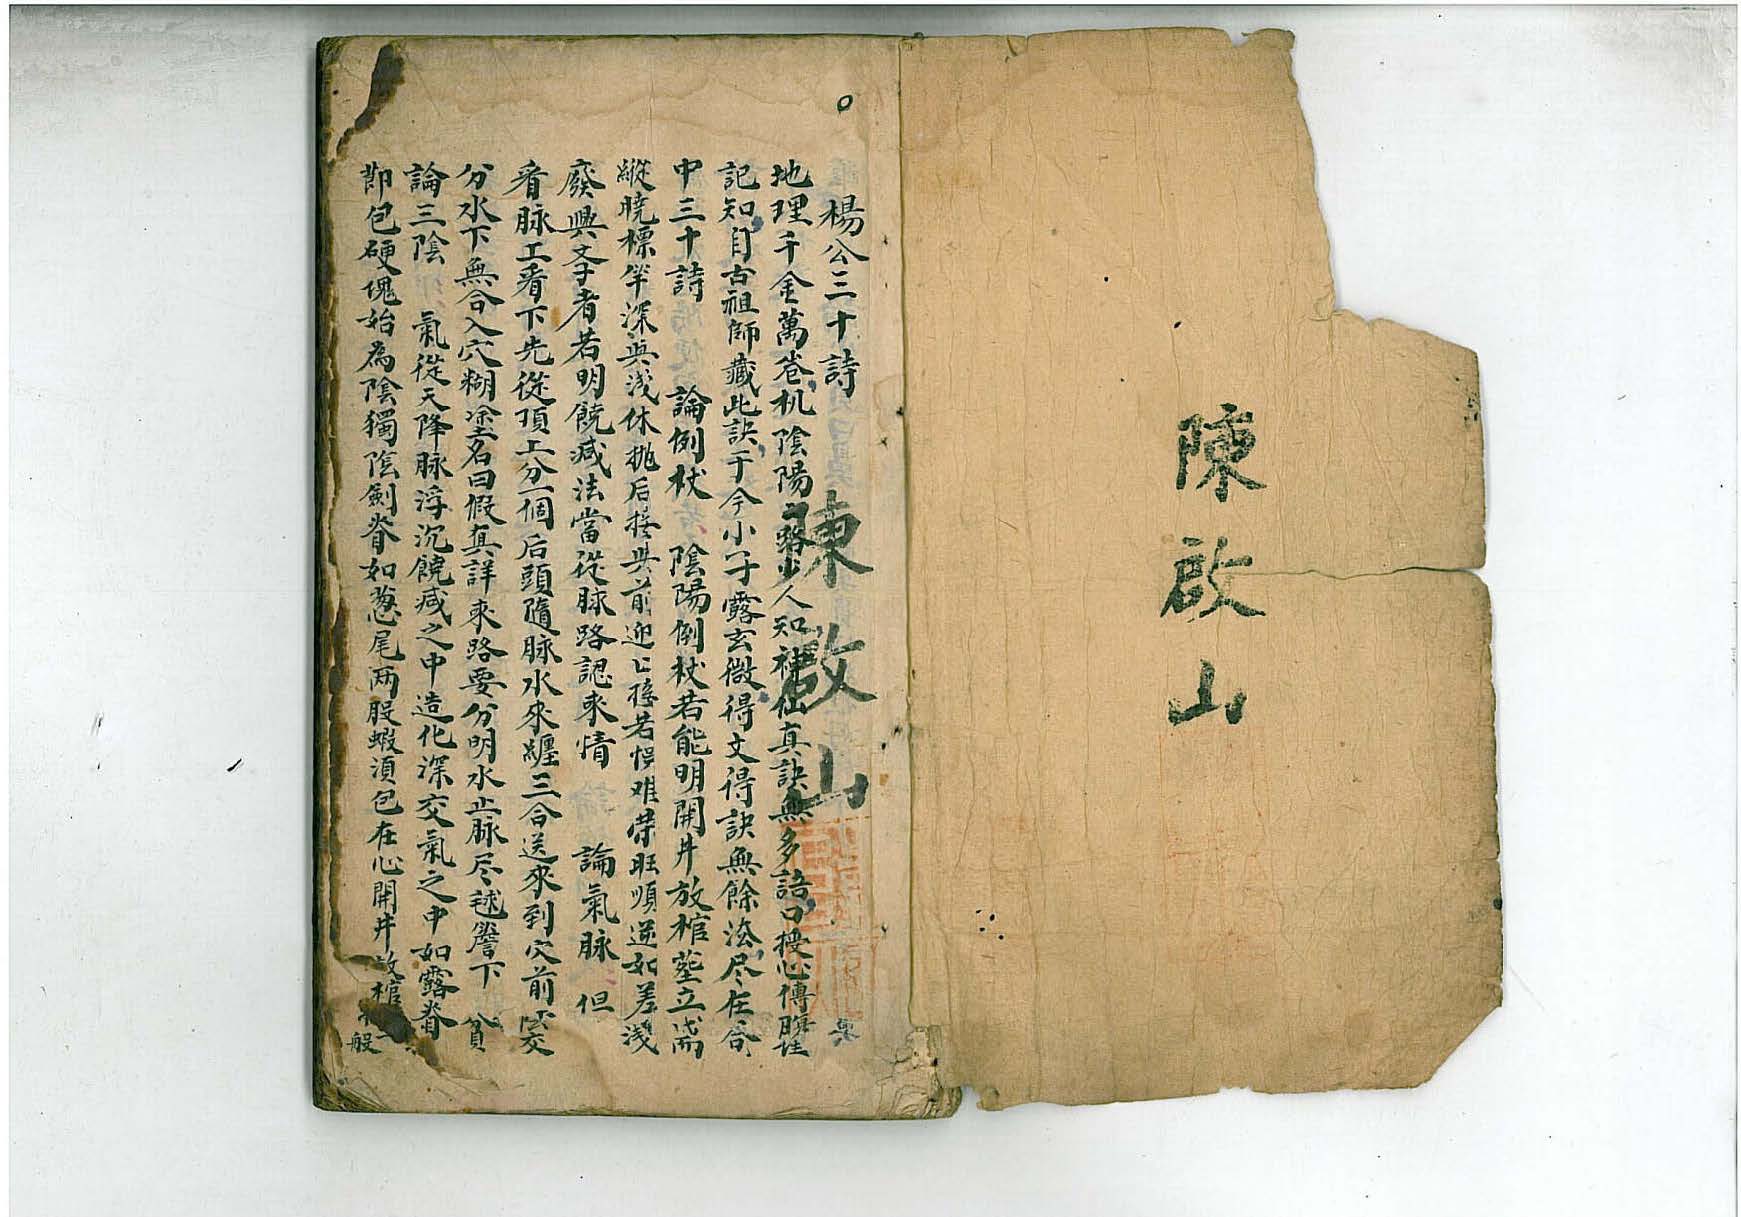 陳啟山
楊公三十詩
陳啟山
地理千金萬卷机陰陽路少人知神仙真訣無多語口授心傳
記知自古祖師藏此訣于今小子露玄微得文得訣無餘法尽在
中三十詩 論倒杖 陰陽倒杖若能明開井放棺立
縱曉標半深與淺休拋后接與前迎 接若悞难旺順逆如差淺
廢興文子者若明饒减法當從脉路認來情 論氣脉 但
看脉上看下先從頂上分一個后頭隨脉水來纏三合送來到穴前
分水下無合入穴糊塗名曰假真詳來路要分明水止脉尽毬簷下
論三陰 氣從天降脉浮沉饒减之中造化深交氣之中如露脊
即包硬塊始為陰獨陰劍脊如葱尾两股蝦湏包在心開井放棺
般